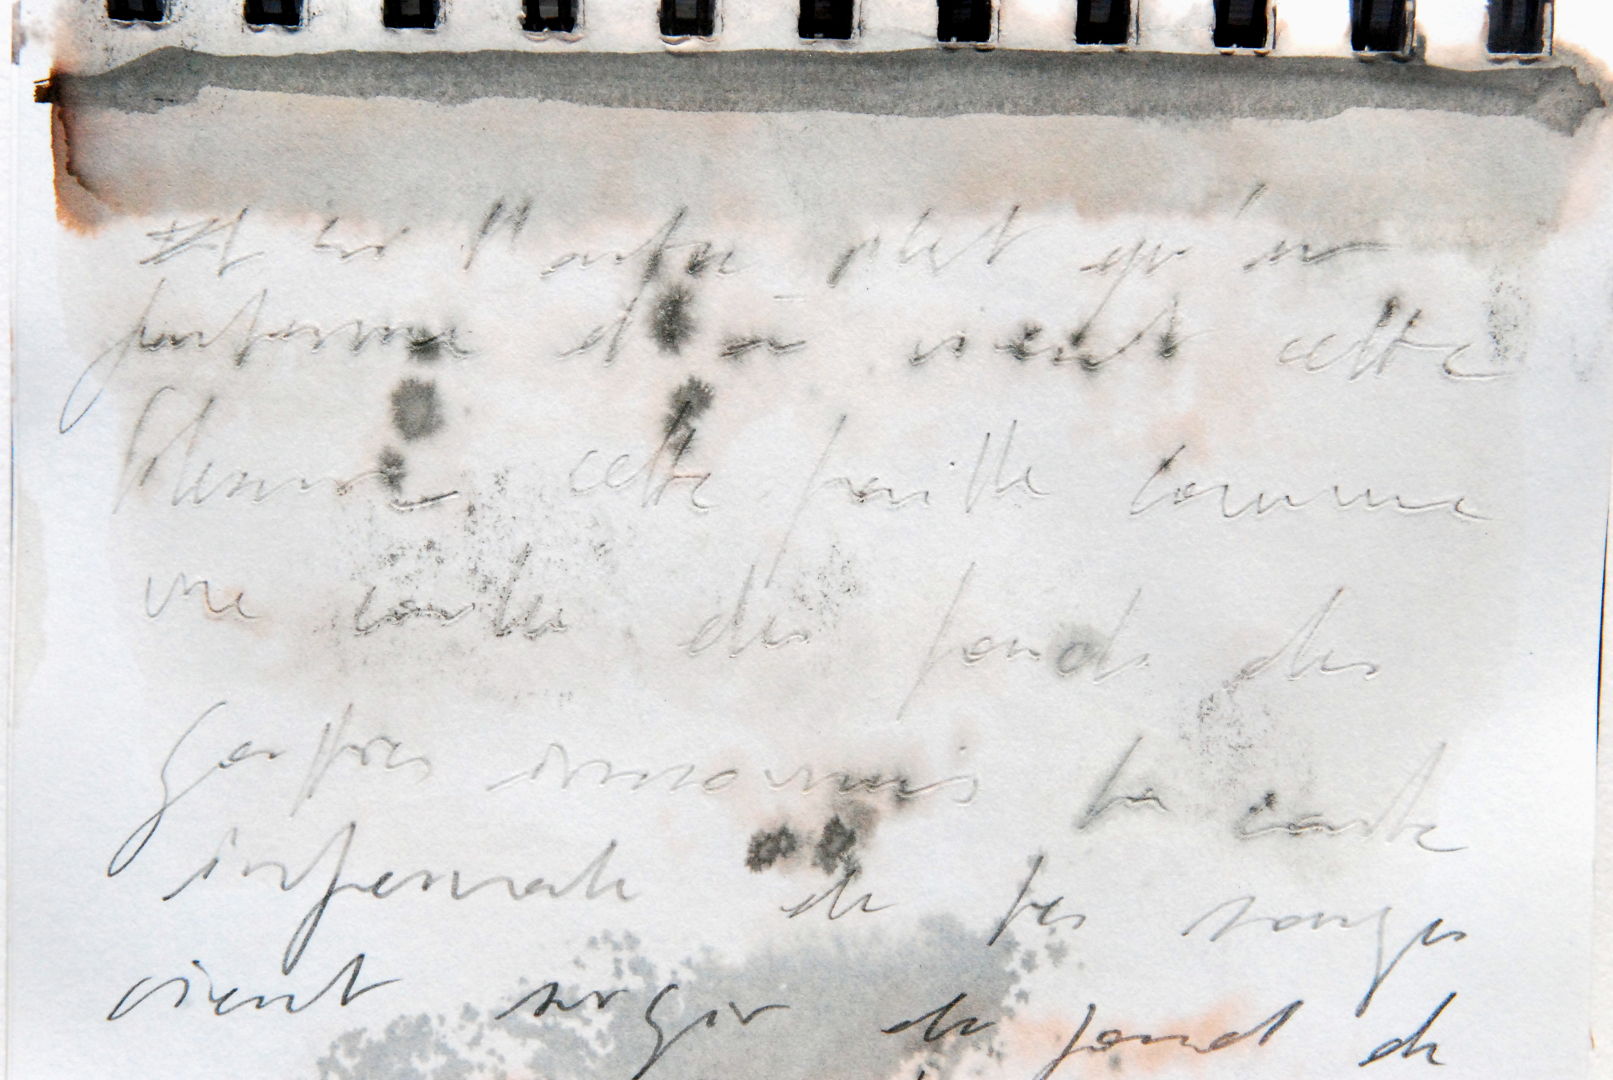 Et si l'autre n'est qu'un
fantasme d'où vient cette
blessure cette faille comme
une carte des fonds des
gouffres inconnus ta carte
infernale de tes songes
vient surgir du fond de